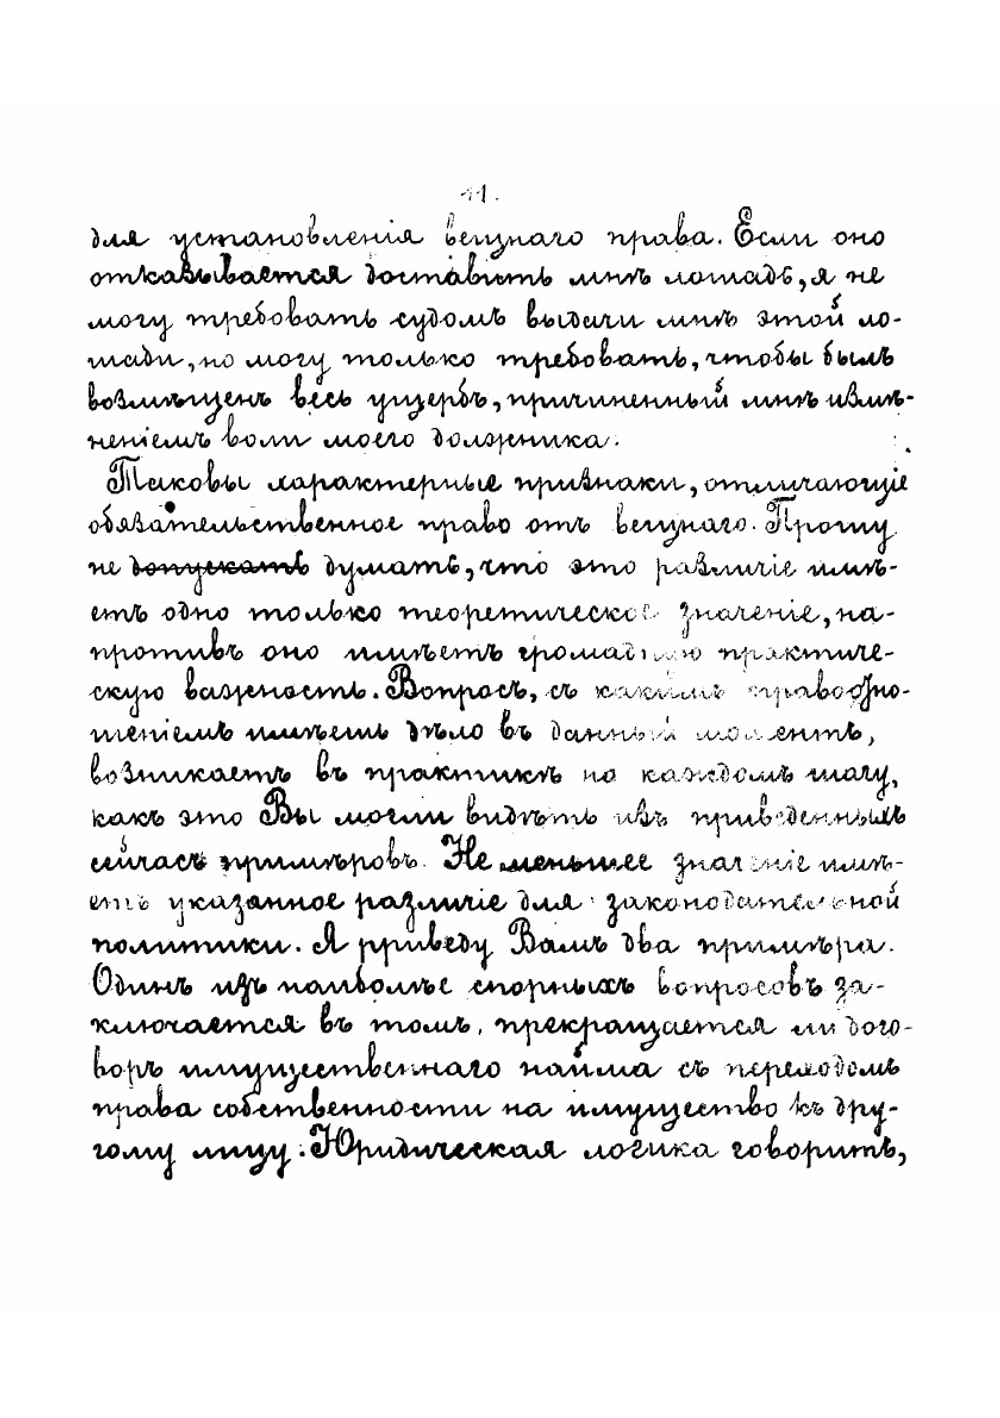 11.
для установленія вещнаго права. Если оно
отказывается доставить мнѣ лошадь, я не
могу требовать судомъ выдачи мнѣ этой ло-
шади, но могу только требовать, чтобы былъ
возмѣщенъ весь ущербъ, причиненный мнѣ измѣ-
неніемъ воли моего должника.
Таковы характерные признаки, отличающіе
обязательственное право отъ вещнаго. Прошу
не допускать думать, что это различіе имѣ-
етъ одно только теоретическое значеніе, на-
противъ оно имѣетъ громадную практиче-
скую важность. Вопросъ, съ какимъ правоотно-
шеніемъ имѣешь дѣло въ данный моментъ,
возникаетъ въ практикѣ на каждомъ шагу,
какъ это Вы могли видѣть изъ приведенныхъ
сейчасъ примѣровъ. Не меньшее значеніе имѣ-
етъ указанное различіе для законодательной
политики. Я приведу Вамъ два примѣра.
Одинъ изъ наиболѣе спорныхъ вопросовъ за-
ключается въ томъ, прекращается ли дого-
воръ имущественнаго найма съ переходомъ
права собственности на имущество къ дру-
гому лицу. Юридическая логика говоритъ,